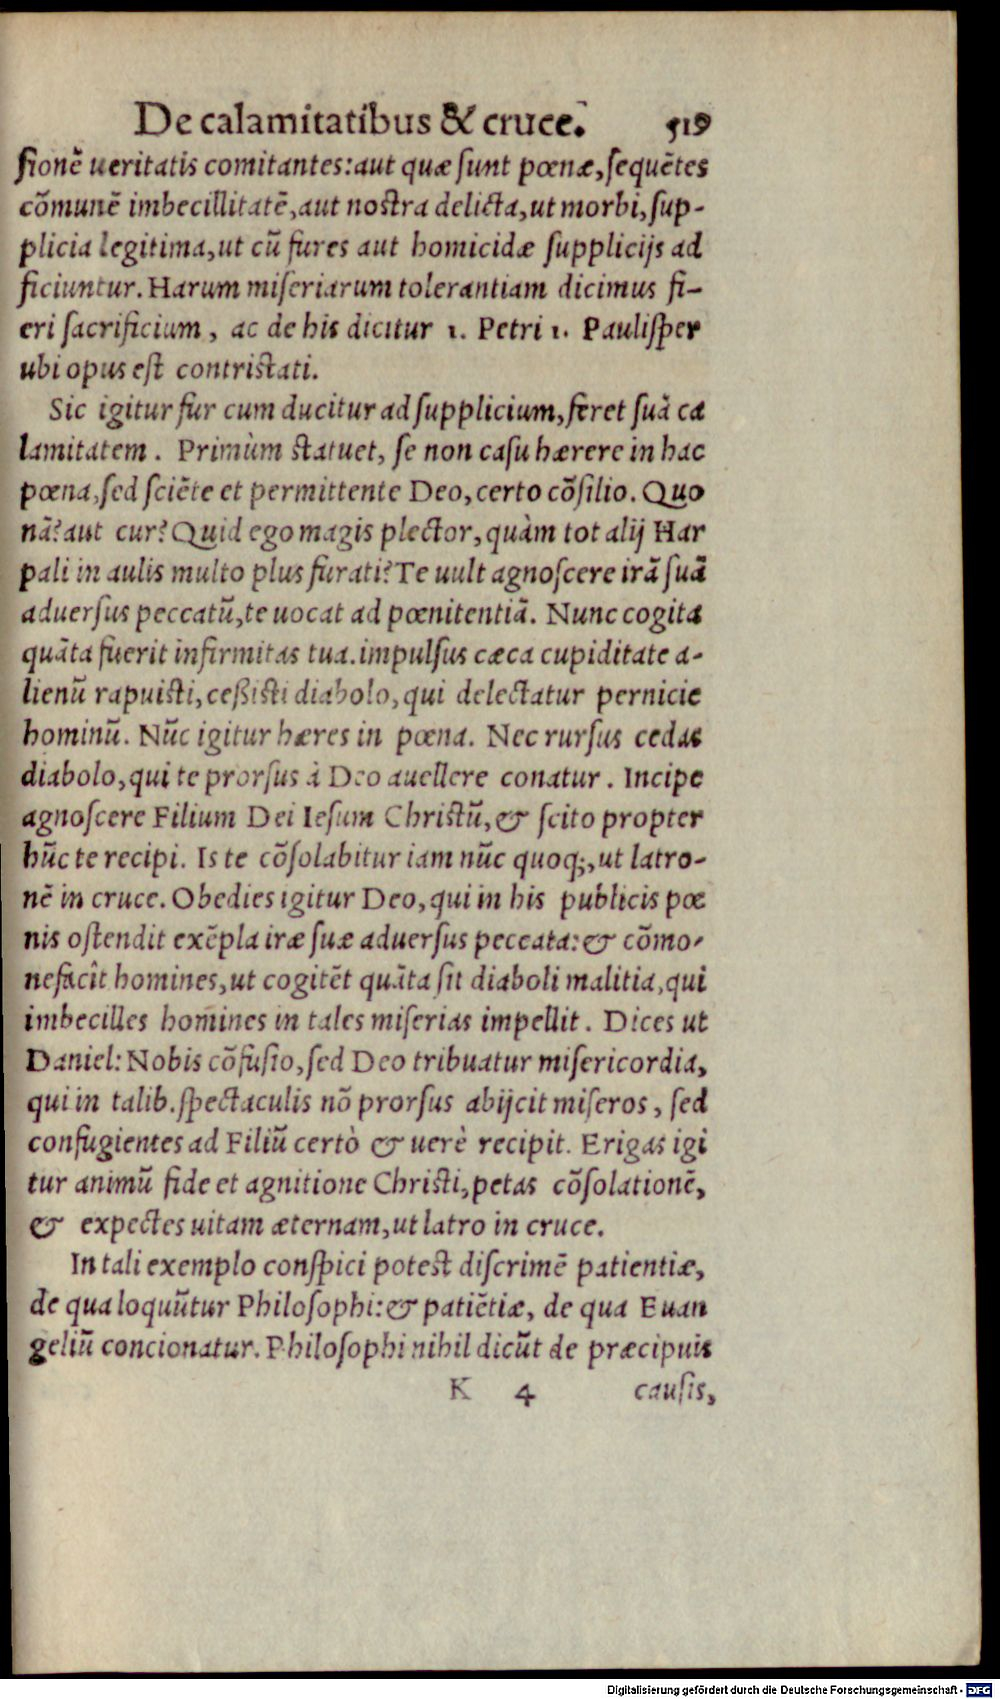 De calamitatibus & cruce. 519
sionē ueritatis comitantes: aut quæ sunt pœnæ, sequētes
cōmunē imbecillitatē, aut nostra delicta, ut morbi, sup-
plicia legitima, ut cū fures aut homicidæ supplicijs ad
ficiuntur. Harum miseriarum tolerantiam dicimus fi-
eri sacrificium, ac de his dicitur 1. Petri 1. Paulisper
ubi opus est contristati.
Sic igitur fur cum ducitur ad supplicium, feret suā ca
lamitatem. Primùm statuet, se non casu hærere in hac
pœna, sed sciēte et permittente Deo, certo cōsilio. Quo
nā? aut cur? Quid ego magis plector, quàm tot alij Har
pali in aulis multo plus furati? Te uult agnoscere irā suā
aduersus peccatū, te uocat ad pœnitentiā. Nunc cogita
quāta fuerit infirmitas tua. impulsus cæca cupiditate a-
lienū rapuisti, ceßisti diabolo, qui delectatur pernicie
hominū. Nūc igitur hæres in pœna. Nec rursus cedas
diabolo, qui te prorsus à Deo auellere conatur. Incipe
agnoscere Filium Dei Iesum Christū, & scito propter
hūc te recipi. Is te cōsolabitur iam nūc quoq;, ut latro-
nē in cruce. Obedies igitur Deo, qui in his publicis pœ
nis ostendit exēpla iræ suæ aduersus peccata: & cōmo-
nefacit homines, ut cogitēt quāta sit diaboli malitia, qui
imbecilles homines in tales miserias impellit. Dices ut
Daniel: Nobis cōfusio, sed Deo tribuatur misericordia,
qui in talib. spectaculis nō prorsus abijcit miseros, sed
confugientes ad Filiū certò & uerè recipit. Erigas igi
tur animū fide et agnitione Christi, petas cōsolationē,
& expectes uitam æternam, ut latro in cruce.
In tali exemplo conspici potest discrimē patientiæ,
de qua loquūtur Philosophi: & patiētiæ, de qua Euan
geliū concionatur. Philosophi nihil dicūt de præcipuis
K 4 causis,
Digitalisierung gefördert durch die Deutsche Forschungsgemeinschaft - DFG